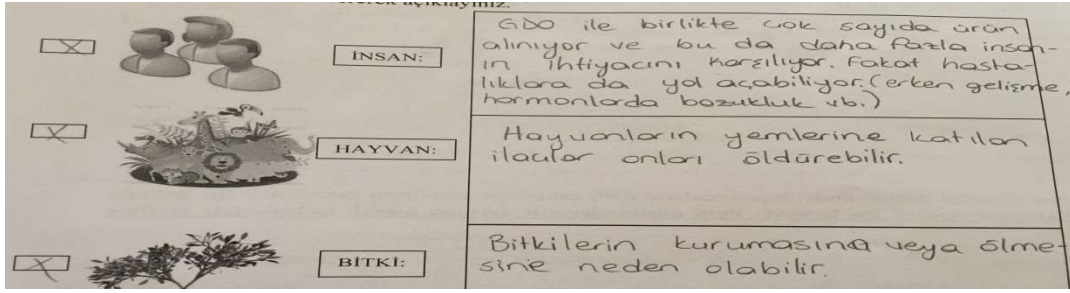 açıklayınız.
X
İNSAN:
GDO ile birlikte çok sayıda ürün
alınıyor ve bu da daha fazla insan-
ın ihtiyacını karşılıyor. Fakat hasta-
lıklara da yol açabiliyor. (erken gelişme,
hormonlarda bozukluk vb.)
X
HAYVAN:
Hayvanların yemlerine katılan
ilaçlar onları öldürebilir.
X
BİTKİ:
Bitkilerin kurumasına veya ölme-
sine neden olabilir.